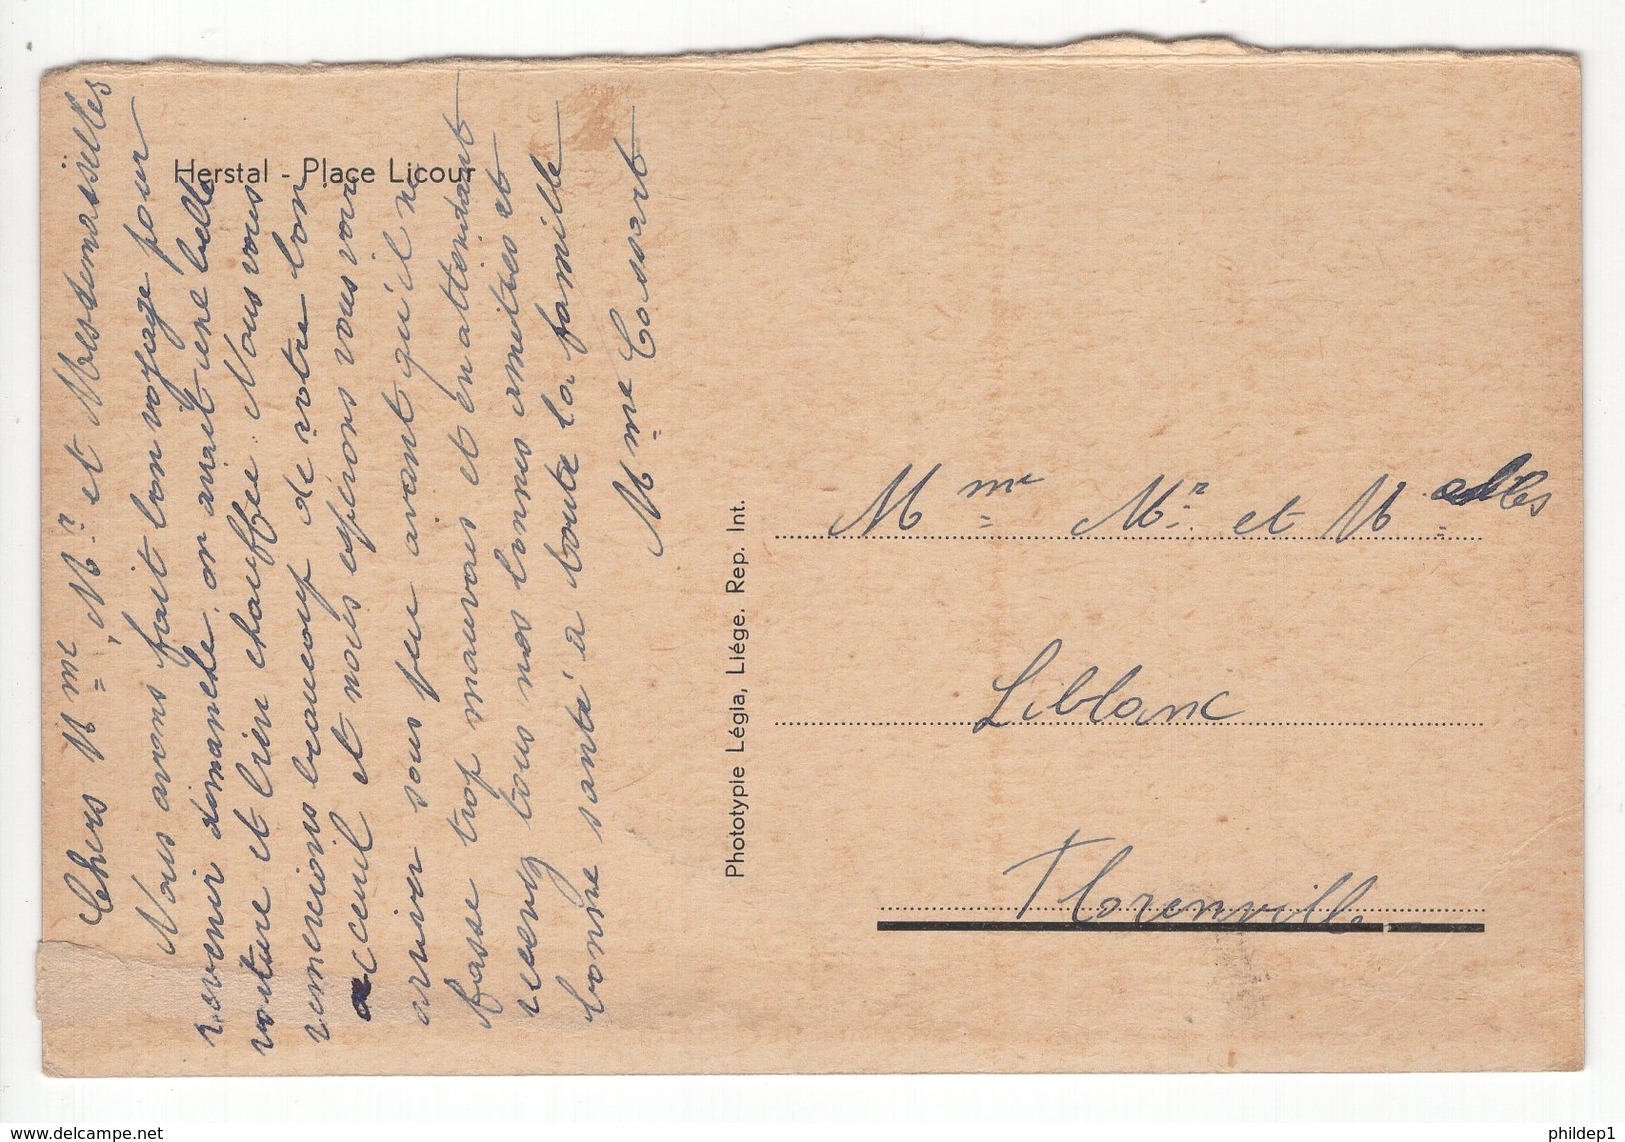 Herstal - Place Licour
Chers Mme, Mr. et Mesdemoiselles
Nous avons fait bon voyage pour
revenir dimanche, on avait une belle
voiture et bien chauffée. Nous vous
remercions beaucoup de votre bon
acceuil et nous espérons vous voir
arriver sous peu avant qu'il ne
fasse trop mauvais et en attendant
recevez tous nos bonnes amitiés et
bonne santé à toute la famille
Mme Cossart
Phototypie Légia, Liége. Rep. Int.
Mme Mr. et M elles
Liblanc
Florenville
www.delcampe.net
phildep1